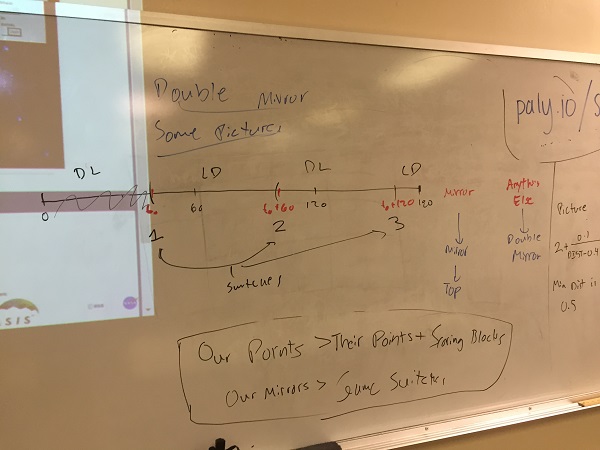 Double Mirror
Some Pictures
DL LD DL LD
0 t₀ 60 t₀+60 120 t₀+120 180
1 2 3
Switches
Mirror
Mirror
Top
Anything Else
Double Mirror
paly.io/S
Picture
2+
0.1
Max Dist is
0.5
Our Points > Their Points + Scoring Blocks
Our Mirrors > Game Switches
SIS